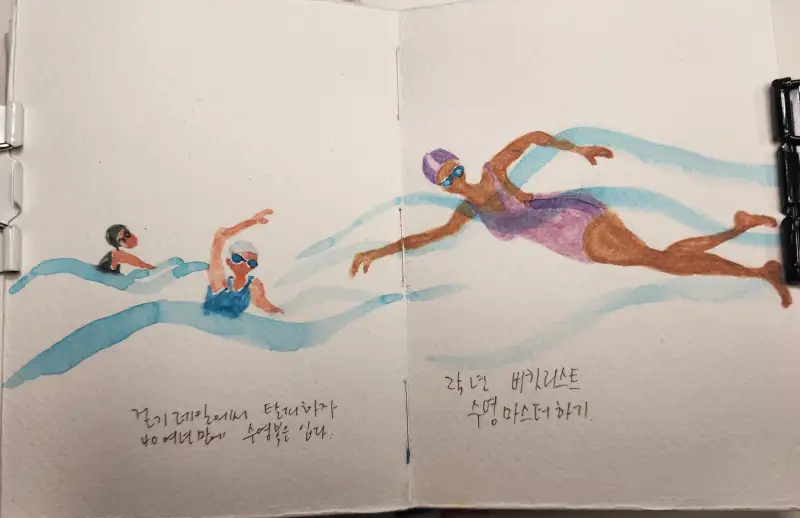 걷기 레일에서 탈피하자
40여년만에 수영복은 입다.
25년 버킷리스트
수영 마스터하기.